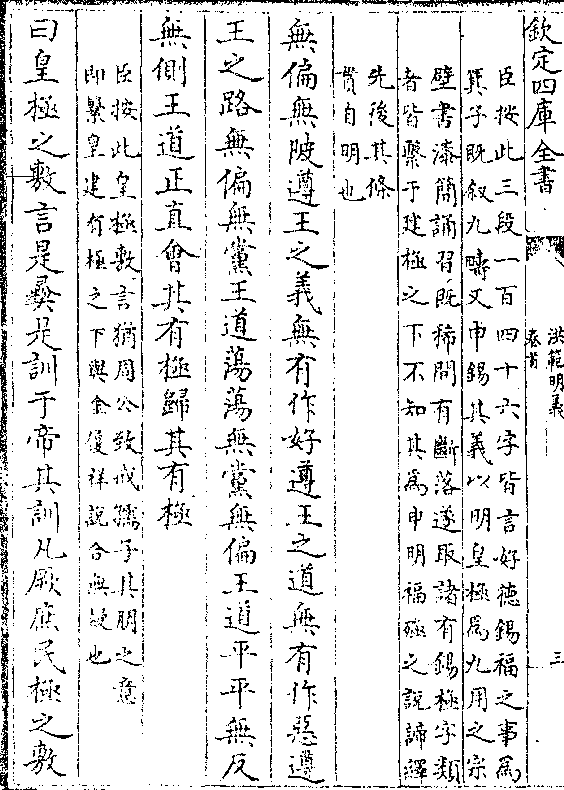 欽定四庫全書
洪範明義
卷首
三
臣按此三段一百四十六字皆言好德錫福之事為
箕子既叙九疇又申錫其義以明皇極為九用之宗
壁書漆簡誦習既稀間有斷落遂取諸有錫極字類
者皆繫于建極之下不知其為申明福極之說諦繹
先後其條
貫自明也
無偏無陂遵王之義無有作好遵王之道無有作惡遵
王之路無偏無黨王道蕩蕩無黨無偏王道平平無反
無側王道正直會其有極歸其有極
臣按此皇極敷言猶周公致戒孺子其朋之意
即繫皇建有極之下與金縢祥說合無疑也
曰皇極之敷言是彝是訓于帝其訓凡厥庶民極之敷